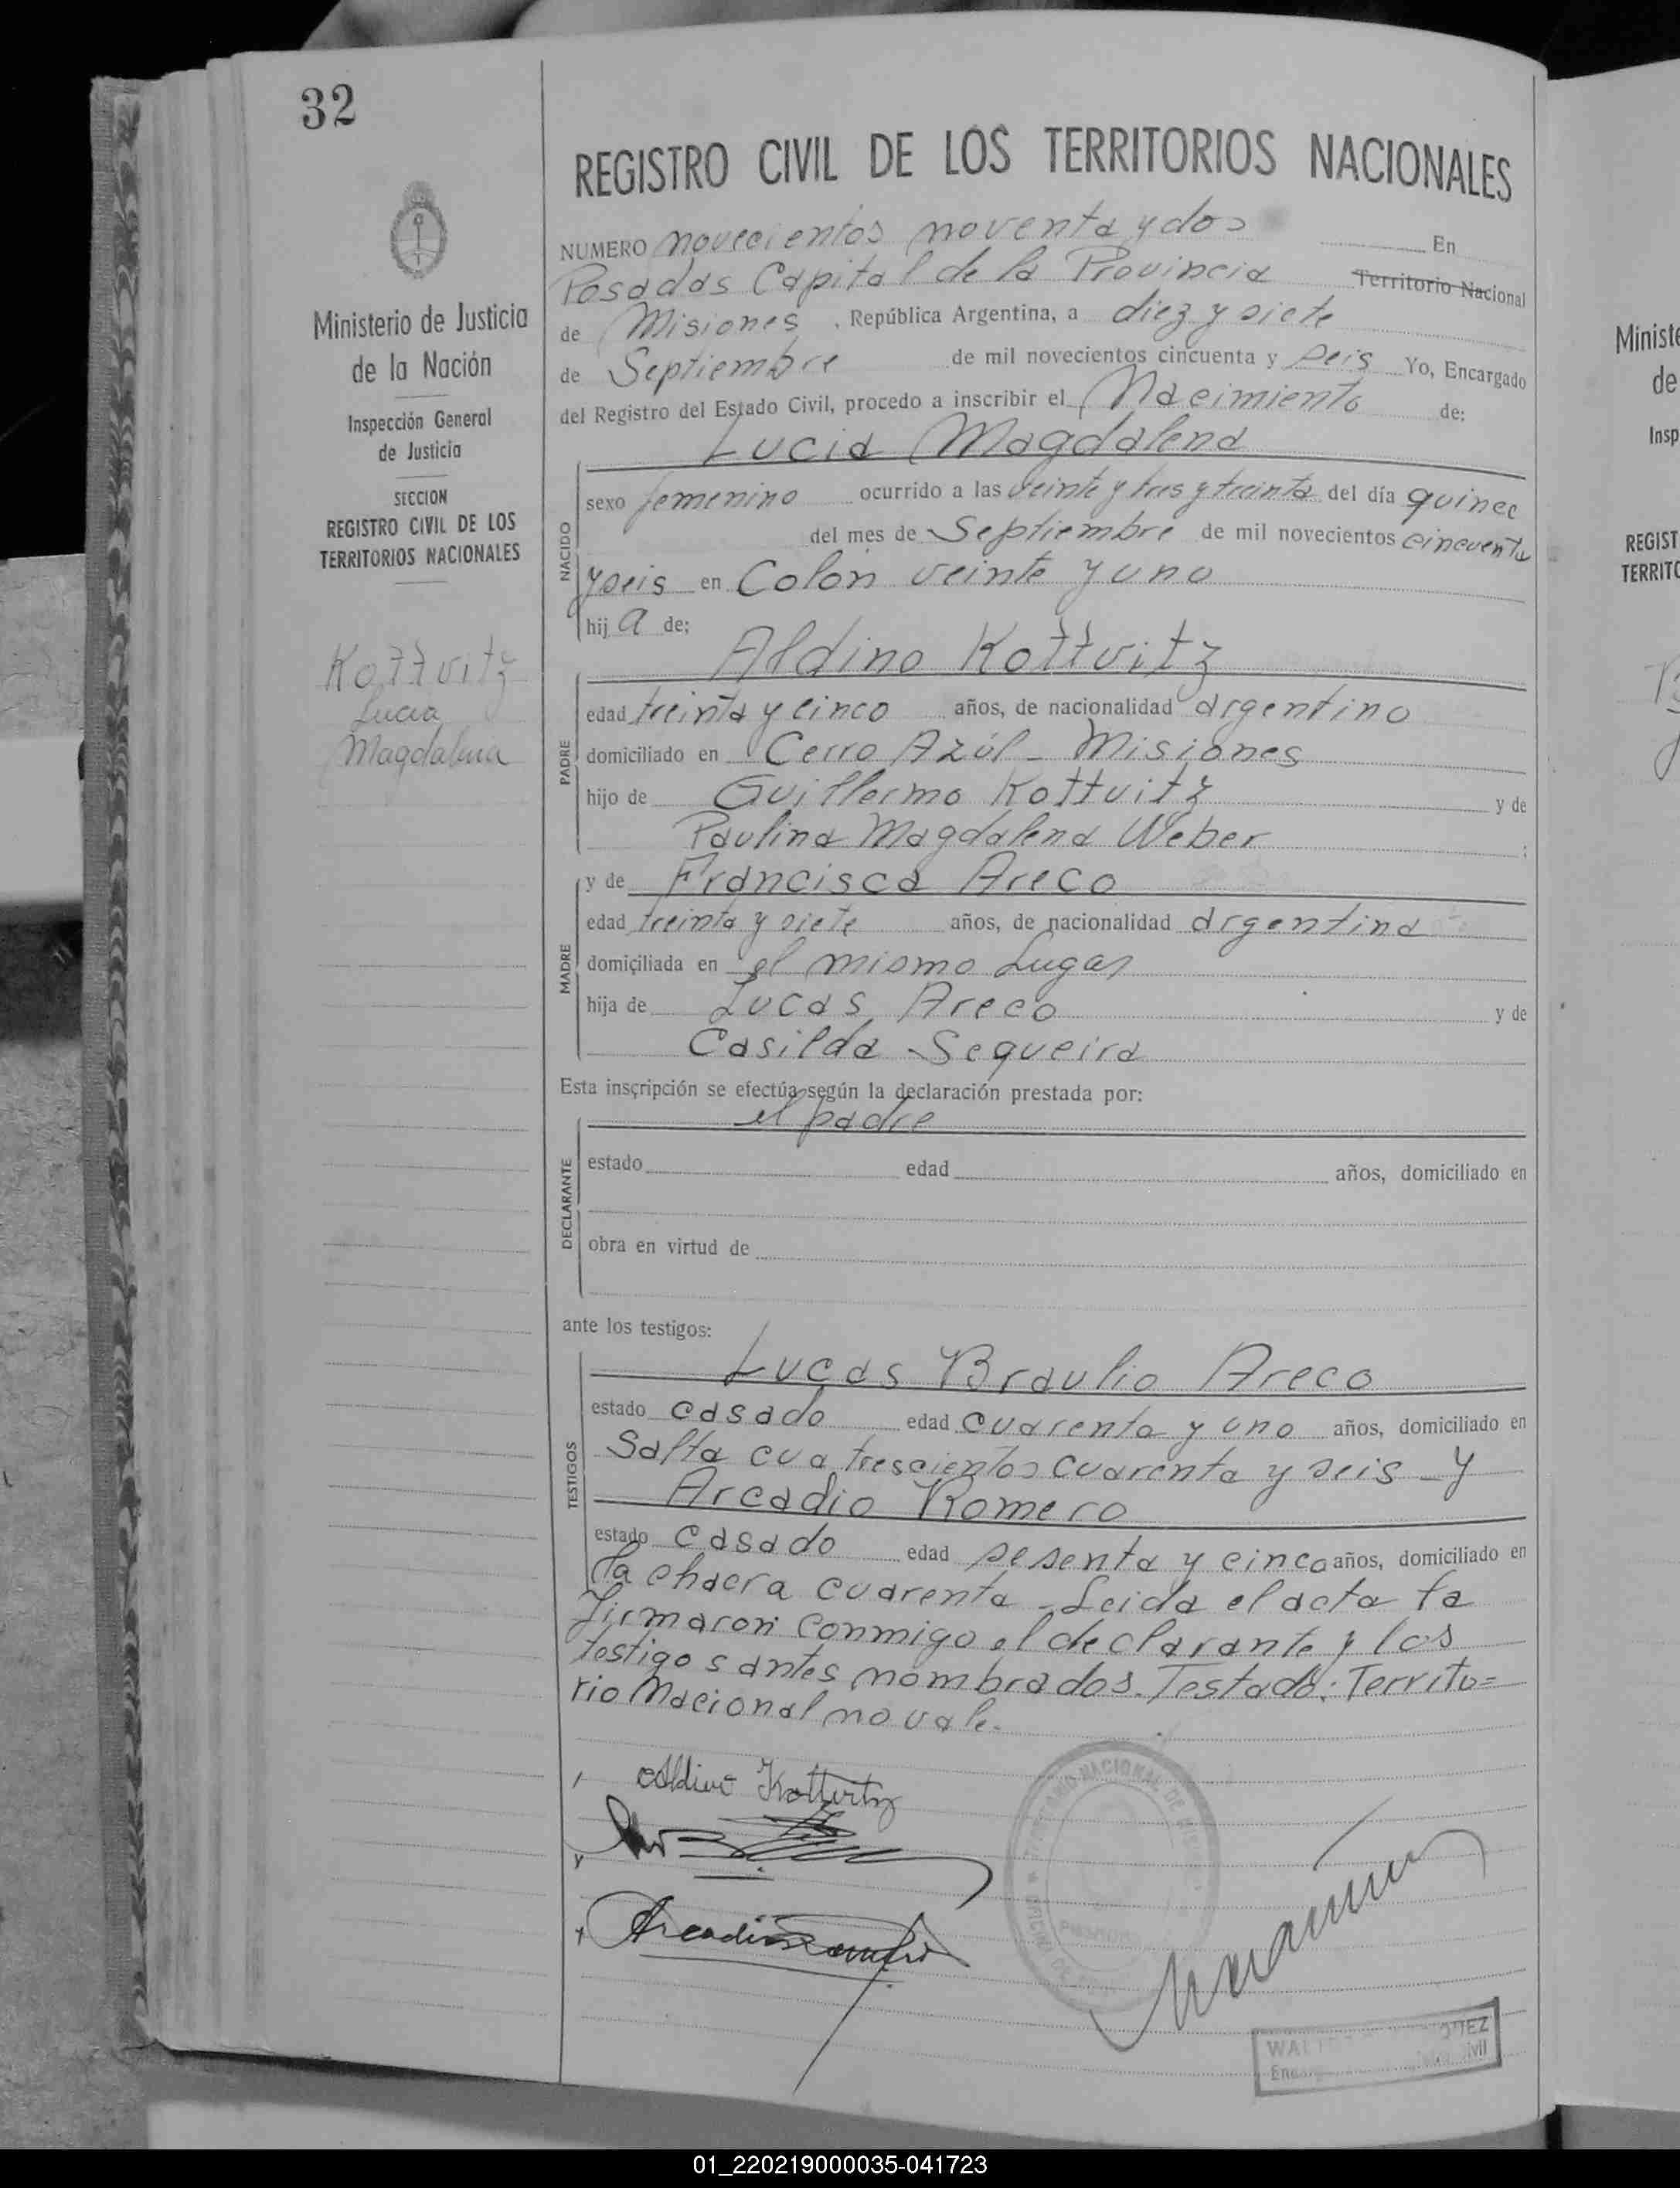 32
REGISTRO CIVIL DE LOS TERRITORIOS NACIONALES
Ministerio de Justicia
de la Nación
Inspección General
de Justicia
SECCION
REGISTRO CIVIL DE LOS
TERRITORIOS NACIONALES
Kottvitz
Lucia
Magdalena
NUMERO novecientos noventa y dos En
Posadas Capital de la Provincia Territorio Nacional
de Misiones, República Argentina, a diez y siete
de Septiembre de mil novecientos cincuenta y seis Yo, Encargado
del Registro del Estado Civil, procedo a inscribir el Nacimiento de:
Lucia Magdalena
NACIDO
sexo femenino ocurrido a las veinte y tres y treinta del día quince
del mes de Septiembre de mil novecientos cincuenta
y seis en Colón veinte y uno
hij a de:
Aldino Kottvitz
PADRE
edad treinta y cinco años, de nacionalidad argentino
domiciliado en Cerro Azúl - Misiones
hijo de Guillermo Kottvitz y de
Paulina Magdalena Weber ;
MADRE
y de Francisca Areco
edad treinta y siete años, de nacionalidad argentina
domiciliada en el mismo Lugar
hija de Lucas Areco y de
Casilda Sequeira
Esta inscripción se efectúa según la declaración prestada por:
el padre
DECLARANTE
estado edad años, domiciliado en
obra en virtud de
ante los testigos:
TESTIGOS
Lucas Braulio Areco
estado casado edad cuarenta y uno años, domiciliado en
Salta cuatrescientos cuarenta y seis - y
Arcadio Romero
estado casado edad sesenta y cinco años, domiciliado en
la chacra cuarenta - Leida el acta la
firmaron conmigo el declarante y los
testigos antes nombrados. Testado: Territo=
rio Nacional no vale.
Aldino Kottvitz
Arcadio Romero
NACIONAL DE
Ministe
de
Insp
REGIST
TERRITO
01_220219000035-041723